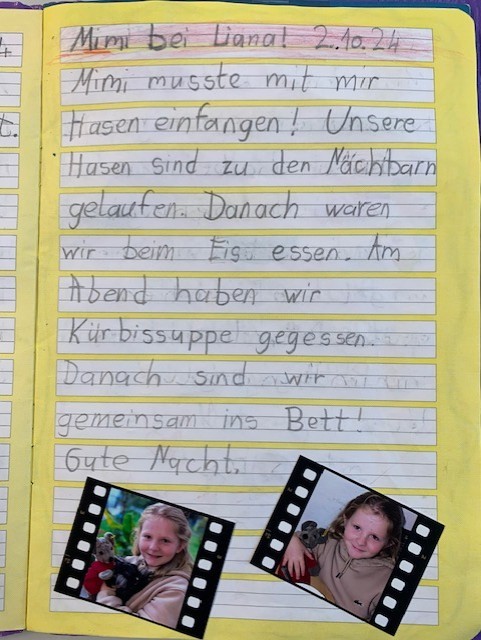 4
Mimi bei Liana! 2.10.24
Mimi musste mit mir
t.
Hasen einfangen! Unsere
Hasen sind zu den Nächbarn
gelaufen. Danach waren
wir beim Eis essen. Am
Abend haben wir
Kürbissuppe gegessen.
Danach sind wir
gemeinsam ins Bett!
Gute Nacht.